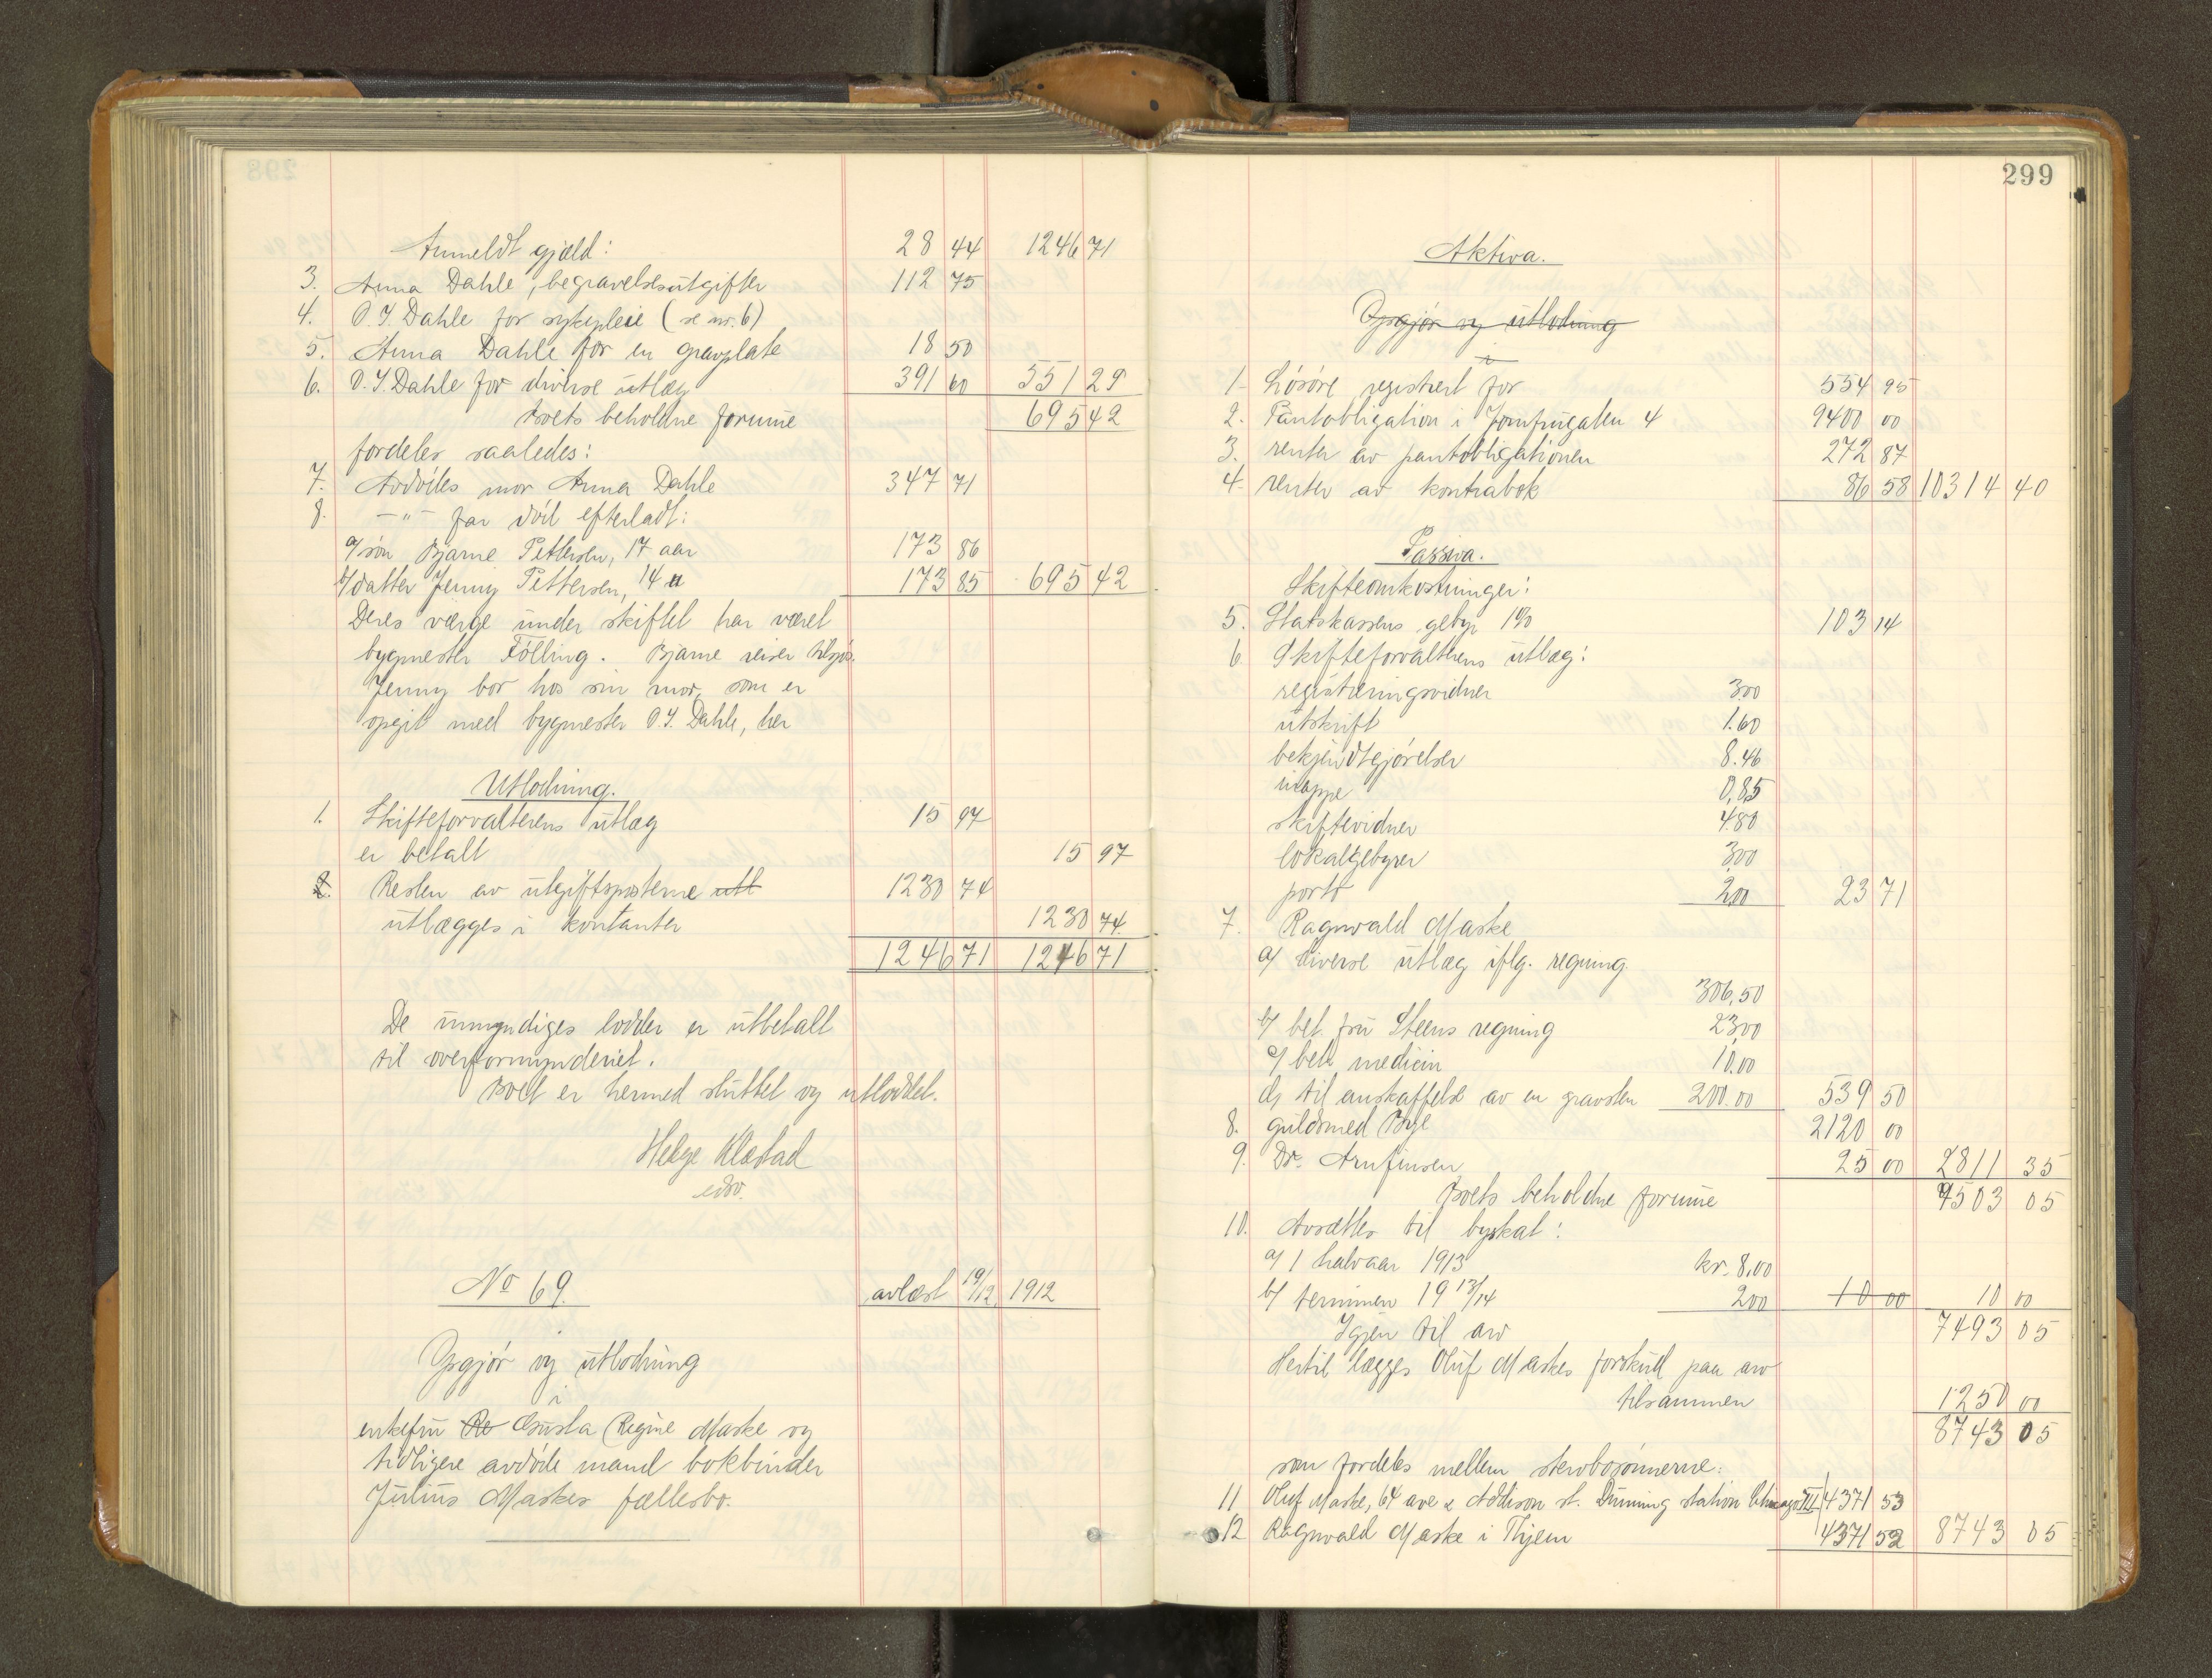 Anmeldt gjæld: 28 44 1246 71
3. Anna Dahle, begravelsesutgifter 112 75
4. O. I. Dahle for sykepleie (se nr. 6)
5. Anna Dahle for en gravplate 18 50
6. O. I. Dahle for diverse utlæg 391 60 551 29
Boets beholdne formue 695 42
fordeles saaledes:
7. Avdødes mor Anna Dahle 347 71
8. -"- far død efterladt:
a/ søn Bjarne Pettersen, 17 aar 173 86
b/ datter Jenny Pettersen, 14 " 173 85 695 42
Deres værge under skiftet har været
bygmester Følling. Bjarne reiser tilsjøs.
Jenny bor hos sin mor, som er
opgit med bygmester O. I. Dahle, her
Utlodning.
1. Skifteforvalterens utlæg 15 97
er betalt 15 97
2. Resten av utgiftsposterne utl 1230 74
utlægges i kontanter 1230 74
1246 71 1246 71
De umyndiges lodder er utbetalt
til overformynderiet.
Boet er hermed sluttet og utloddet.
Helge Klæstad
edsv.
No 69. avlæst 19/12 1912
Opgjør og utlodning
i
enkefru Re Gusta Regine Maske og
tidligere avdøde mand bokbinder
Julius Maskes fællesbo.
299
Aktiva.
Opgjør og utlodning
i
1. Løsøre registrert for 554 95
2. Pantobligation i Jomfrugaten 4 9400 00
3. renter av pantobligationen 272 87
4. renter av kontrabok 86 58 10314 40
Passiva.
Skifteomkostninger:
5. Statskassens gebyr 1% 103 14
6. Skifteforvalterens utlæg:
registreringsvidner 3.00
utskrift 1.60
bekjendtgjørelser 8.46
mappe 0,85
skiftevidner 4.80
lokalgebyrer 3,00
porto 2,00 23 71
7. Ragnvald Maske
a/ diverse utlæg iflg. regning
306,50
b/ bet. fru Steens regning 23,00
c/ bet. medicin 10.00
d/ til anskaffelse av en gravsten 200.00 539 50
8. guldsmed Bye 2120 00
9. Dr. Arnfinsen 25 00 2811 35
Boets beholdne formue 7503 05
10. Avsættes til byskat:
a/ 1 halvaar 1913 kr. 8,00
b/ terminen 19 13/14 2,00 10 00 10 00
Igjen til arv 7493 05
Hertil lægges Oluf Maskes forskud paa arv
1250 00
tilsammen
8743 05
som fordeles mellem stervbosønnerne:
11 Oluf Maske, 64 ave & Addison st. Dunning station Chicago Ill 4371 53
12 Ragnvald Maske i Thjem 4371 52 8743 05